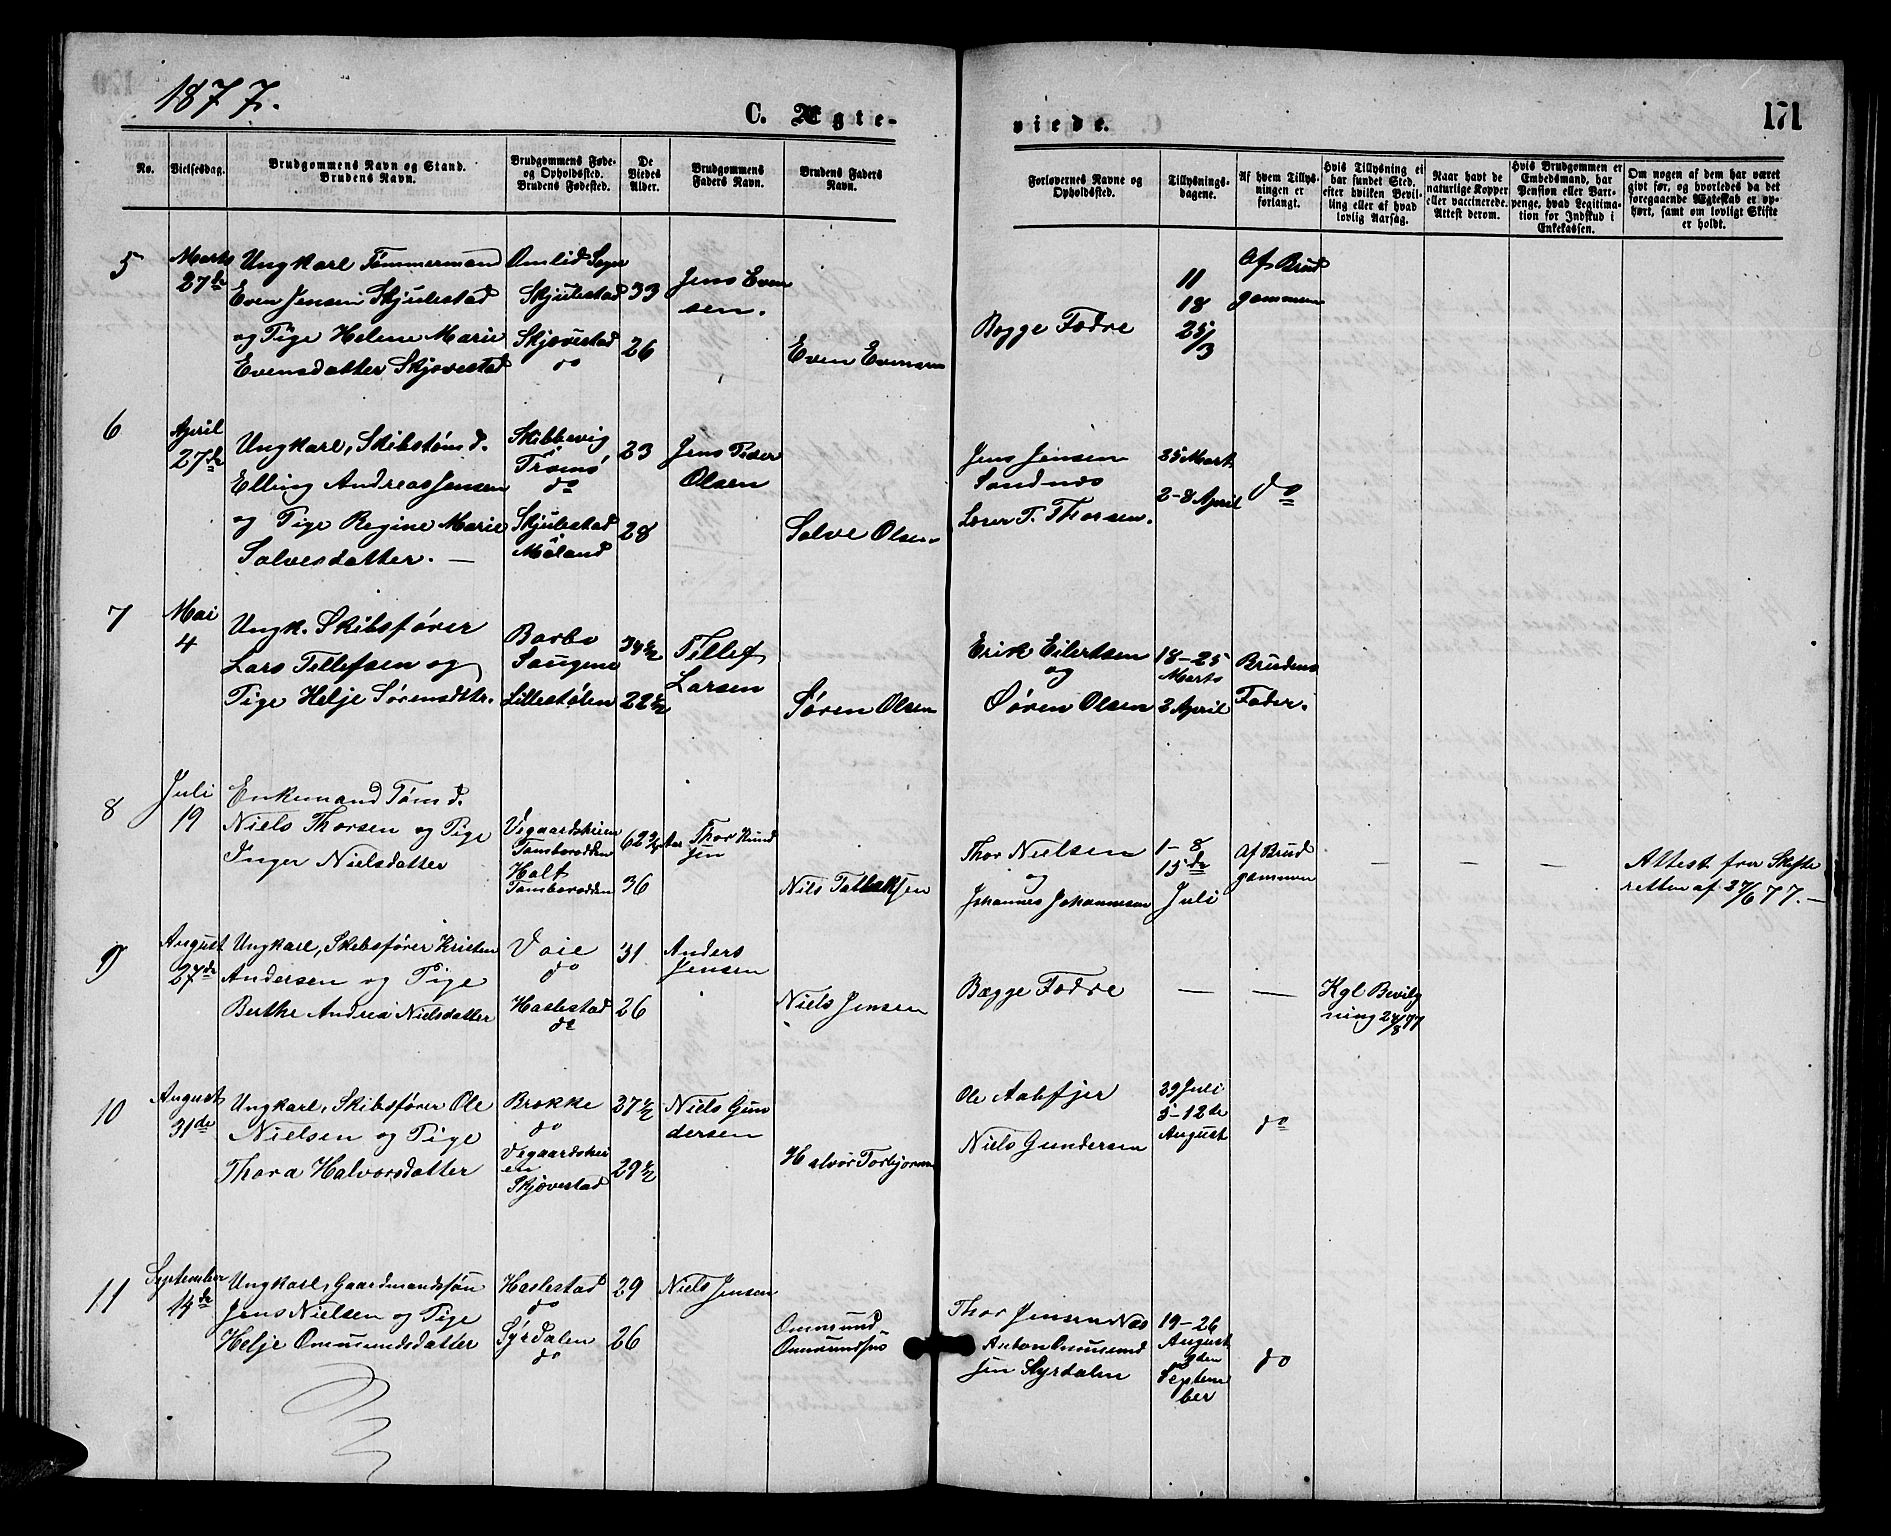 1877.
C. Ægte-
viede.
171
No.
Vielsesdag.
Brudgommens Navn og Stand.
Brudens Navn.
Brudgommens Føde-
og Opholdssted.
Brudens Fødested.
De
Viedes
Alder.
Brudgommens
Faders Navn.
Brudens Faders
Navn.
Forlovernes Navne og
Opholdssted.
Tillysnings-
dagene.
Af hvem Tillys-
ningen er
forlangt.
Hvis Tillysning ei
har fundet Sted,
efter hvilken Bevil-
ling eller af hvad
lovlig Aarsag.
Naar havt de
naturlige Kopper
eller vaccinerede.
Attest derom.
Hvis Brudgommen er
Embedsmand, har
Pension eller Vart-
penge, hvad Legitima-
tion for Indskud i
Enkekassen.
Om nogen af dem har været
givt før, og hvorledes da det
foregaaende Ægteskab er op-
hørt, samt om lovligt Skifte
er holdt.
5
Marts
27de
Ungkarl Tømmermand
Even Jensen Skjulestad
og Pige Helene Marie
Evensdatter Skjævestad
Omlid Sogn
Skjulestad
Skjævestad
do
33
26
Jens Even
sen.
Even Evensen
Begge Fædre
11
18
25/3
Af Brud
gommen
6
April
27de
Ungkarl, Skibstømd.
Elling Andreas Jensen
og Pige Regine Marie
Salvesdatter. —
Skibbevig
Tromø
do
Skjulestad
Møland
23
28
Jens Peder
Olsen
Salve Olsen
Jens Jensen
Sandnæs
Lærer T. Thorsen.
25 Mart
2-8 April
do
7
Mai
4
Ungk. Skibsfører
Lars Tellefsen og
Pige Helje Sørensdtr.
Barbo
Saugene
Lillestølen
34½
22½
Tellef
Larsen
Søren Olsen
Erik Eilertsen
og
Søren Olsen
18-25
Marts
2 April
Brudens
Fader.
8
Juli
19
Enkemand Tømd.
Niels Thorsen og Pige
Inger Nielsdatter
Vegaardsheien
Tamborodden
Holt
Tamborodden
36
Thor Knud
sen
Nils Tallaksen
Thor Nielsen
og
Johannes Johannesen
1-8
15de
Juli
Af Brud
gommen
—
—
—
Attest fra Skifte
retten af 27/6 77. —
9
August
27de
Ungkarl, Skibsfører Kristen
Andersen og Pige
Berthe Andrea Nielsdatter
Voie
do
Haslestad
do
31
26
Anders
Jensen
Niels Jensen
Begge Fædre
—
—
Kgl Bevilg
ning 24/8 77
10
August
31de
Ungkarl, Skibsfører Ole
Nielsen og Pige
Thora Halvorsdatter
Brække
do
Vegaardshei
en
Skjævestad
27½
29½
Niels Gun
dersen
Halvor Torbjornsen
Ole Aabfjer
Niels Gundersen
29 Juli
5-12te
August
do
11
September
14de
Ungkarl, Gaardmandssøn
Jens Nielsen og Pige
Helje Ommundsdatter
Haslestad
do
Syrdalen
do
29
26
Niels Jensen
Ommund
Ommundsen
Thor Jensen Næs
Anton Ommund
sen Syrdalen
19-26
August
2den
Septem
ber
do